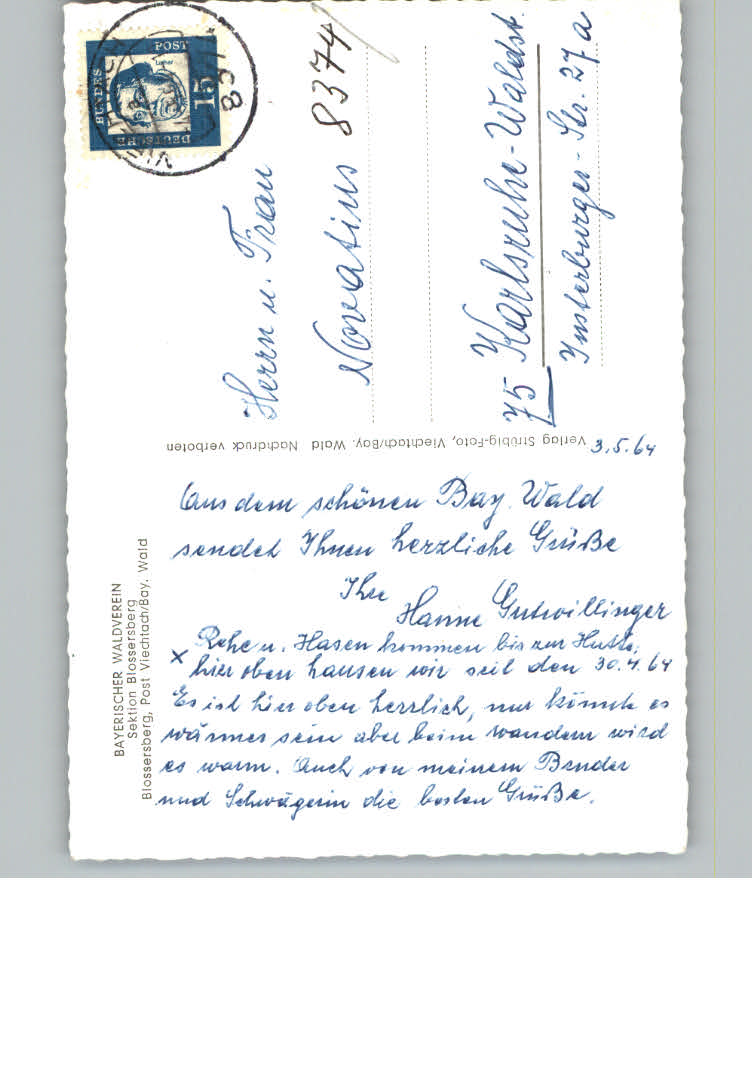 BAYERISCHER WALDVEREIN
Sektion Blossersberg
Blossersberg, Post Viechtach/Bay. Wald
3.5.64
Aus dem schönen Bay. Wald
sendet Ihnen herzliche Grüße
Ihre
Hanne Gutwillinger
Rehe u. Hasen kommen bis zur Hütte,
x hier oben hausen wir seit den 30.4.64
Es ist hier oben herrlich, nur könnte es
wärmer sein aber beim wandern wird
es warm. Auch von meinem Bruder
und Schwägerin die besten Grüße.
Verlag Strübig-Foto, Viechtach/Bay. Wald Nachdruck verboten
DEUTSCHE
BUNDES
POST
Luther
15
8374
Herrn u. Frau
Novatius
75 Karlsruhe-Waldst.
Insterburger-Str. 27a